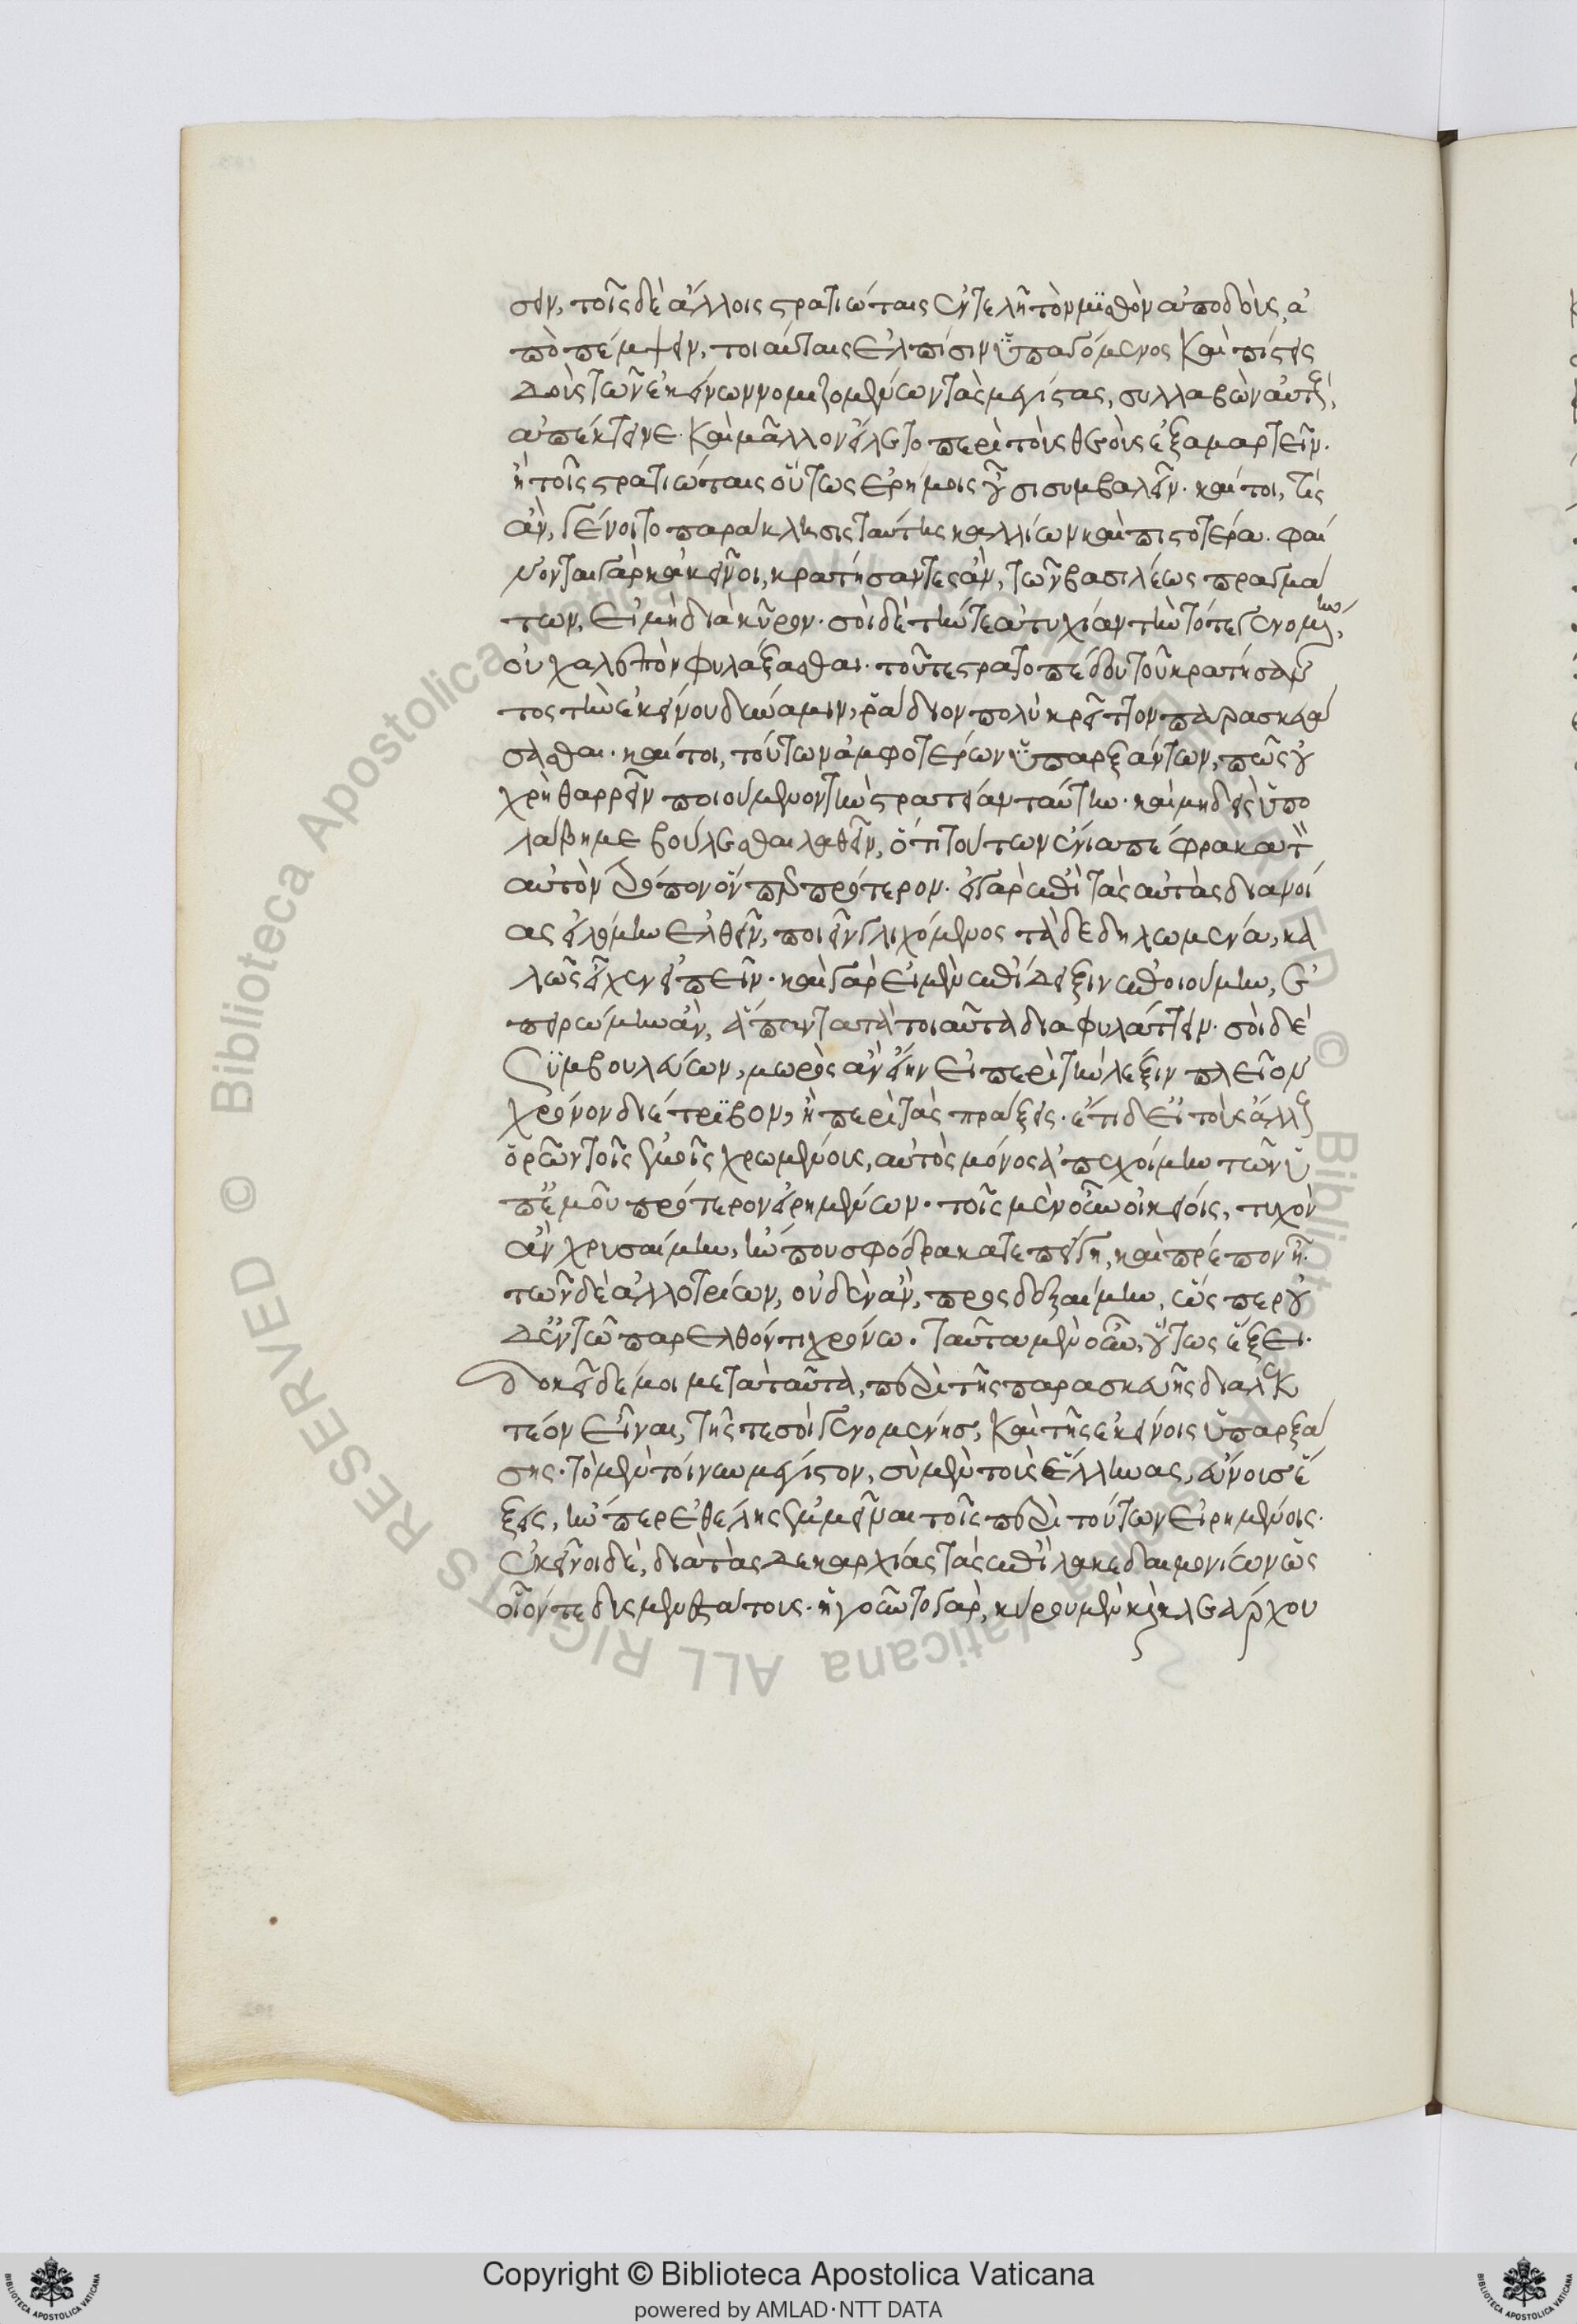 σειν, τοῖς δὲ ἄλλοις στρατιώταις ἐντελῆ τὸν μισθὸν ἀποδοὺς, ἀ
ποπέμψειν, τοιαύταις ἐλπίσιν ὑπαγόμενος καὶ πίστεις
δοὺς τῶν ἐκείνων νομιζομένων τὰς μεγίστας, συλλαβὼν αὐτοὺς,
ἀπέκτεινε. καὶ μᾶλλον εἵλετο περὶ τοὺς θεοὺς ἐξαμαρτεῖν.
ἢ τοῖς στρατιώταις οὕτως ἐρήμοις οὖσι συμβαλεῖν. καίτοι, τίς
ἂν, γένοιτο παράκλησις ταύτης καλλίων καὶ πιστοτέρα. φαί
νονται γὰρ κἀκεῖνοι, κρατήσαντες ἂν, τῶν βασιλέως πραγμά
των, εἰ μὴ διὰ κῦρον. σοὶ δὲ τήν τε ἀτυχίαν τὴν τότε γενομένην,
οὐ χαλεπὸν φυλάξασθαι. τοῦ τε στρατοπέδου τοῦ κρατήσαν
τος τὴν ἐκείνου δύναμιν, ῥᾴδιον πολὺ κρεῖττον παρασκευά
σασθαι. καίτοι, τούτων ἀμφοτέρων ὑπαρξάντων, πῶς οὐ
χρὴ θαρρεῖν ποιούμενον τὴν στρατείαν ταύτην. καὶ μηδεὶς ὑπο
λάβῃ με βούλεσθαι λαθεῖν, ὅτι τούτων ἔνια πέφρακα τὸν
αὐτὸν τρόπον ὅνπερ πρότερον. εἰ γὰρ ἐπὶ τὰς αὐτὰς διανοί
ας εἱλόμην ἐλθεῖν, ποιεῖν γλιχόμενος τὰ δεδηλωμένα, κα
λῶς ἔχειν εἰπεῖν. καὶ γὰρ εἰ μὲν ἐπίδειξιν ἐποιούμην, ἐ
πειρώμην ἂν, ἅπαντα τὰ τοιαῦτα διαφυλάττειν. σοὶ δὲ
συμβουλεύων, μωρὸς ἂν εἴην εἰ περὶ τὴν λέξιν πλείον
χρόνον διέτριβον, ἢ περὶ τὰς πράξεις. ἔτι δὲ εἰ τοὺς ἄλλους
ὁρῶν τοῖς ἐμοῖς χρωμένους, αὐτὸς μόνος ἀπεχοίμην τῶν ὑ
π' ἐμοῦ πρότερον εἰρημένων. τοῖς μὲν οὖν οἰκείοις, τυχὸν
ἂν χρησαίμην, ἤν που σφόδρα κατεπείγῃ, καὶ πρέπον ᾖ.
τῶν δὲ ἀλλοτρίων, οὐδὲν ἂν, προσδεξαίμην, ὥσπερ οὐ
δ' ἐν τῷ παρελθόντι χρόνῳ. ταῦτα μὲν οὖν, οὕτως ἕξει.
δοκεῖ δέ μοι μετὰ ταῦτα, περὶ τῆς παρασκευῆς διαλεκ
τέον εἶναι, τῆς τε σοὶ γενομένης, καὶ τῆς ἐκείνοις ὑπαρξά
σης. τὸ μὲν τοίνυν μέγιστον, σὺ μὲν τοὺς ἕλληνας, εὔνους ἕ
ξεις, ἤνπερ ἐθέλῃς ἐμμεῖναι τοῖς περὶ τούτων εἰρημένοις.
ἐκεῖνοι δὲ, διὰ τὰς δεκαρχίας τὰς ἐπὶ λακεδαιμονίων ὡς
οἷόν τε δυσμενεστάτους. ἡγοῦντο γὰρ, κύρου μὲν καὶ κλεάρχου